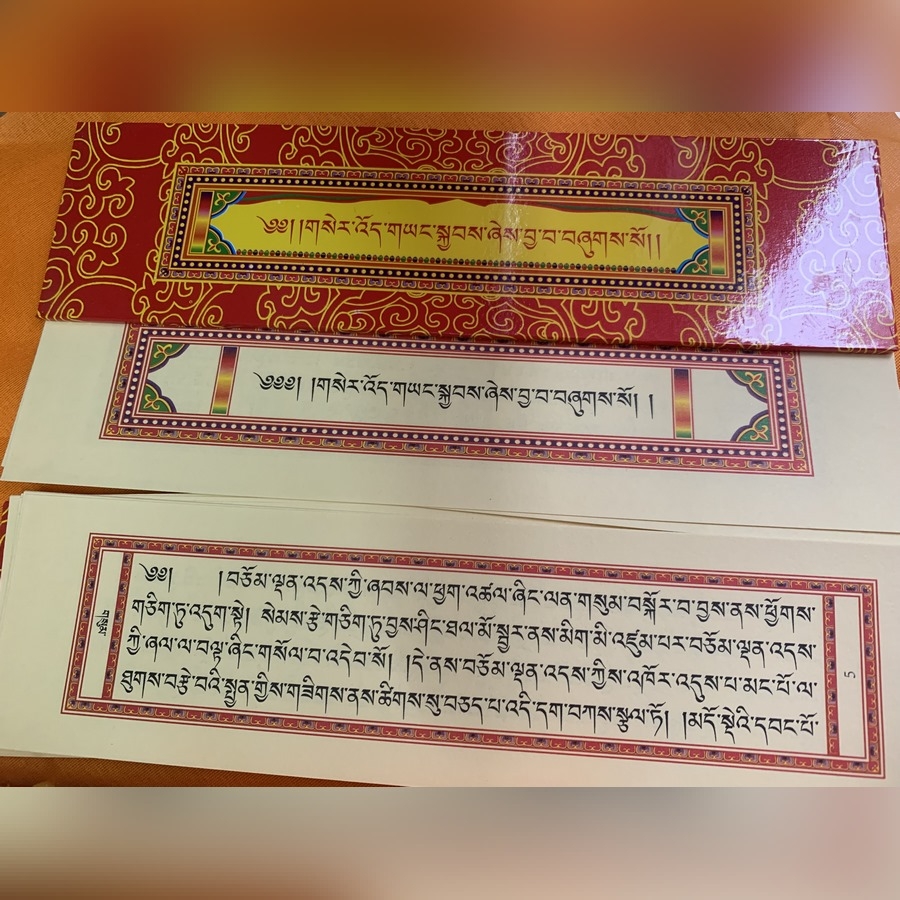 ༄༅། །གསེར་འོད་གཡང་སྐྱབས་ཞེས་བྱ་བ་བཞུགས་སོ། །
༄༅༅། །གསེར་འོད་གཡང་སྐྱབས་ཞེས་བྱ་བ་བཞུགས་སོ། །
༄༅། །བཅོམ་ལྡན་འདས་ཀྱི་ཞབས་ལ་ཕྱག་འཚལ་ཞིང་ལན་གསུམ་བསྐོར་བ་བྱས་ནས་ཕྱོགས་
གཅིག་ཏུ་འདུག་སྟེ། སེམས་རྩེ་གཅིག་ཏུ་བྱས་ཤིང་ཐལ་མོ་སྦྱར་ནས་མིག་མི་འཛུམ་པར་བཅོམ་ལྡན་འདས་
ཀྱི་ཞལ་ལ་བལྟ་ཞིང་གསོལ་བ་འདེབ་སོ། །དེ་ནས་བཅོམ་ལྡན་འདས་ཀྱིས་འཁོར་འདུས་པ་མང་པོ་ལ་
ཐུགས་བརྩེ་བའི་སྤྱན་གྱིས་གཟིགས་ནས་ཚིགས་སུ་བཅད་པ་འདི་དག་བཀས་སྩལ་ཏོ། །མདོ་སྡེའི་དབང་པོ་
གསུམ་
5